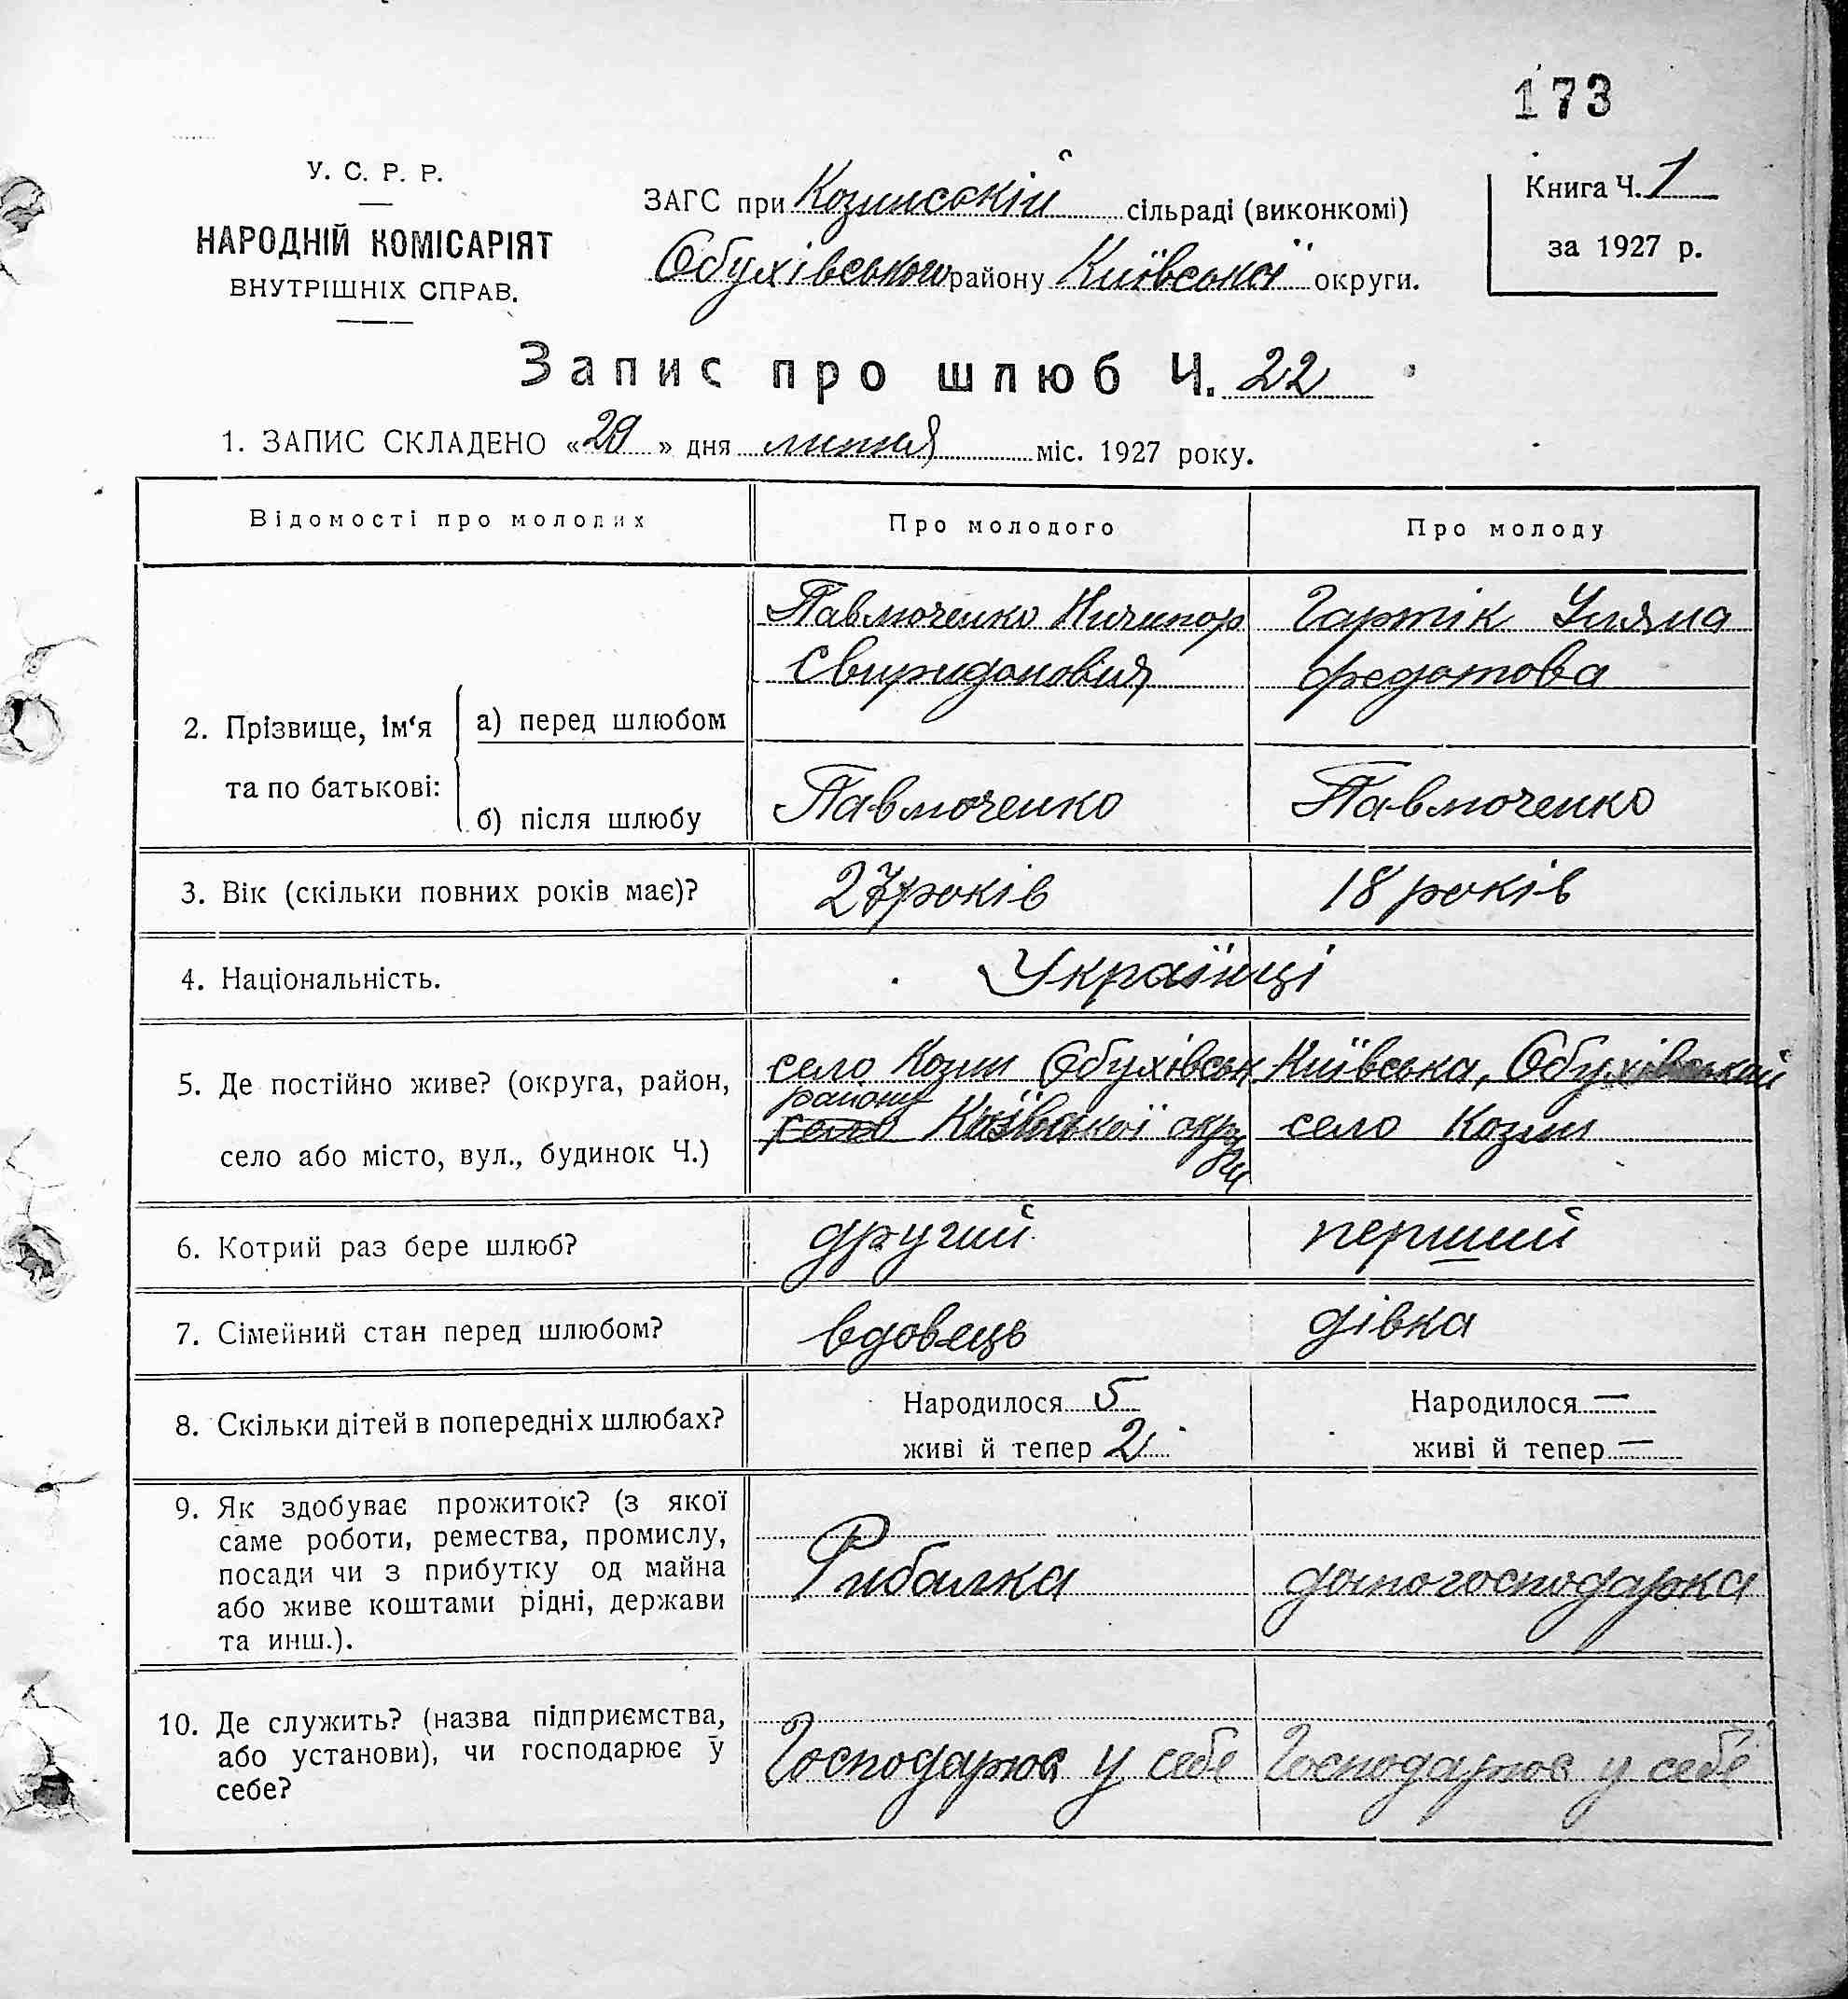 173
У. С. Р. Р.
НАРОДНІЙ КОМІСАРІЯТ
ВНУТРІШНІХ СПРАВ.
ЗАГС при Козинській сільраді (виконкомі)
Обухівського району Київської округи.
Книга Ч. 1
за 1927 р.
Запис про шлюб Ч. 22
1. ЗАПИС СКЛАДЕНО «29» дня липня міс. 1927 року.
Відомості про молодих Про молодого Про молоду
2. Прізвище, ім‘я та по батькові:
а) перед шлюбом
Павлюченко Ничипор
Свиридонович
Гартік Уляна
Федотова
б) після шлюбу Павлюченко Павлюченко
3. Вік (скільки повних років має)? 27 років 18 років
4. Національність. Українці
5. Де постійно живе? (округа, район,
село або місто, вул., будинок Ч.)
село Козин Обухівськ
району
село Київської округи
Київська, Обухівський
село Козин
6. Котрий раз бере шлюб? другий перший
7. Сімейний стан перед шлюбом? вдовець дівка
8. Скільки дітей в попередніх шлюбах?
Народилося 5
живі й тепер 2
Народилося —
живі й тепер —
9. Як здобуває прожиток? (з якої
саме роботи, ремества, промислу,
посади чи з прибутку од майна
або живе коштами рідні, держави
та инш.).
Рибалка
домогосподарка
10. Де служить? (назва підприємства,
або установи), чи господарює у
себе?
Господарює у себе
Господарює у себе